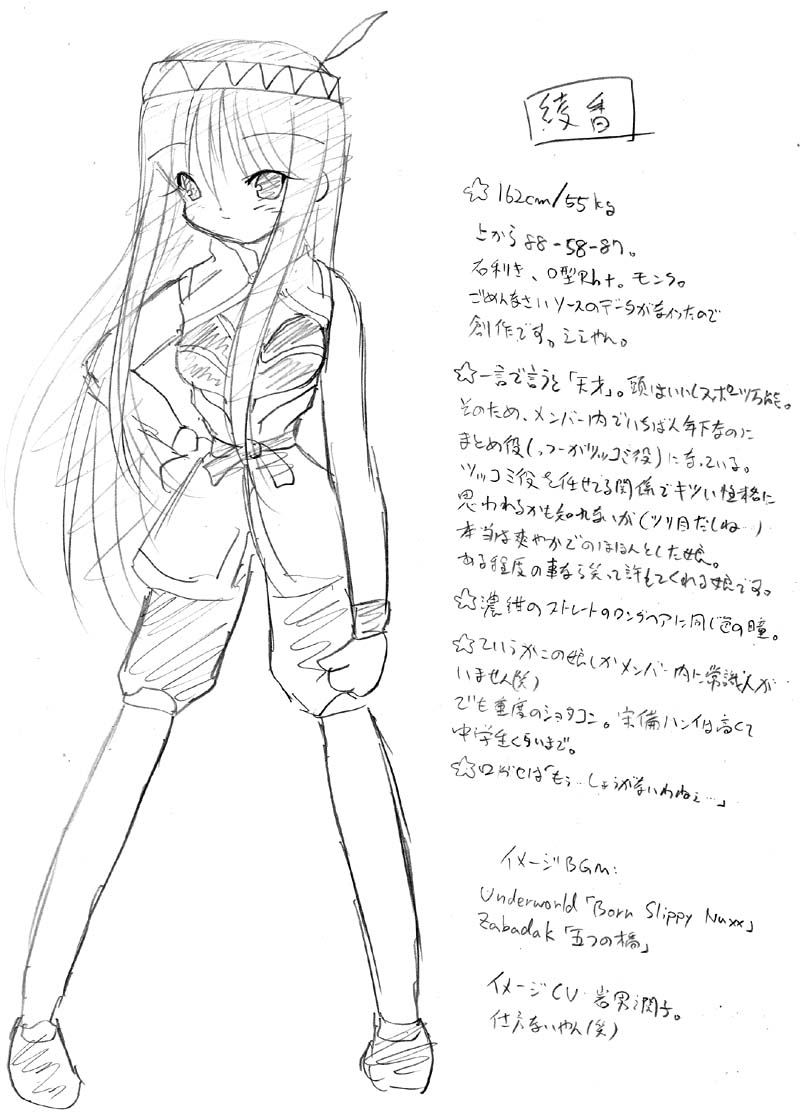 綾香
☆162cm/55kg
上から88-58-87。
右利き、O型Rh+。モンク。
ごめんなさいソースのデータがなかったので
創作です。ミミやん。
☆一言で言うと「天才」。頭はいいしスポーツ万能。
そのため、メンバー内でいちばん年下なのに
まとめ役(っつーかツッコミ役)になっている。
ツッコミ役を任せてる関係でキツい性格に
思われるかも知れないが(ツリ目だしね…)
本当は爽やかでのほほんとした娘。
ある程度の事なら笑って許してくれる娘です。
☆濃紺のストレートのロングヘアに同じ色の瞳。
☆ていうかこの娘しかメンバー内に常識人が
いません(笑)
でも重度のショタコン。守備ハンイは高くて
中学生くらいまで。
☆口ぐせは「もぅ…しょうがないわねぇ…」
イメージBGM:
Underworld「Born Slippy Nuxx」
Zabadak「五つの橋」
イメージCV 岩男潤子。
仕方ないやん(笑)